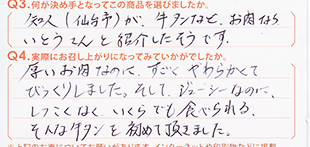 Q3.何が決め手となってこの商品を選びましたか。
知人(仙台市)が、牛タンなど、お肉なら
いとうさんと紹介したそうです。
Q4.実際にお召し上がりになってみていかがでしたか。
厚いお肉なのに、すごくやわらかくて
びっくりしました。そして、ジューシーなのに、
しつこくなく、いくらでも食べられる、
そんな牛タンを初めて頂きました。